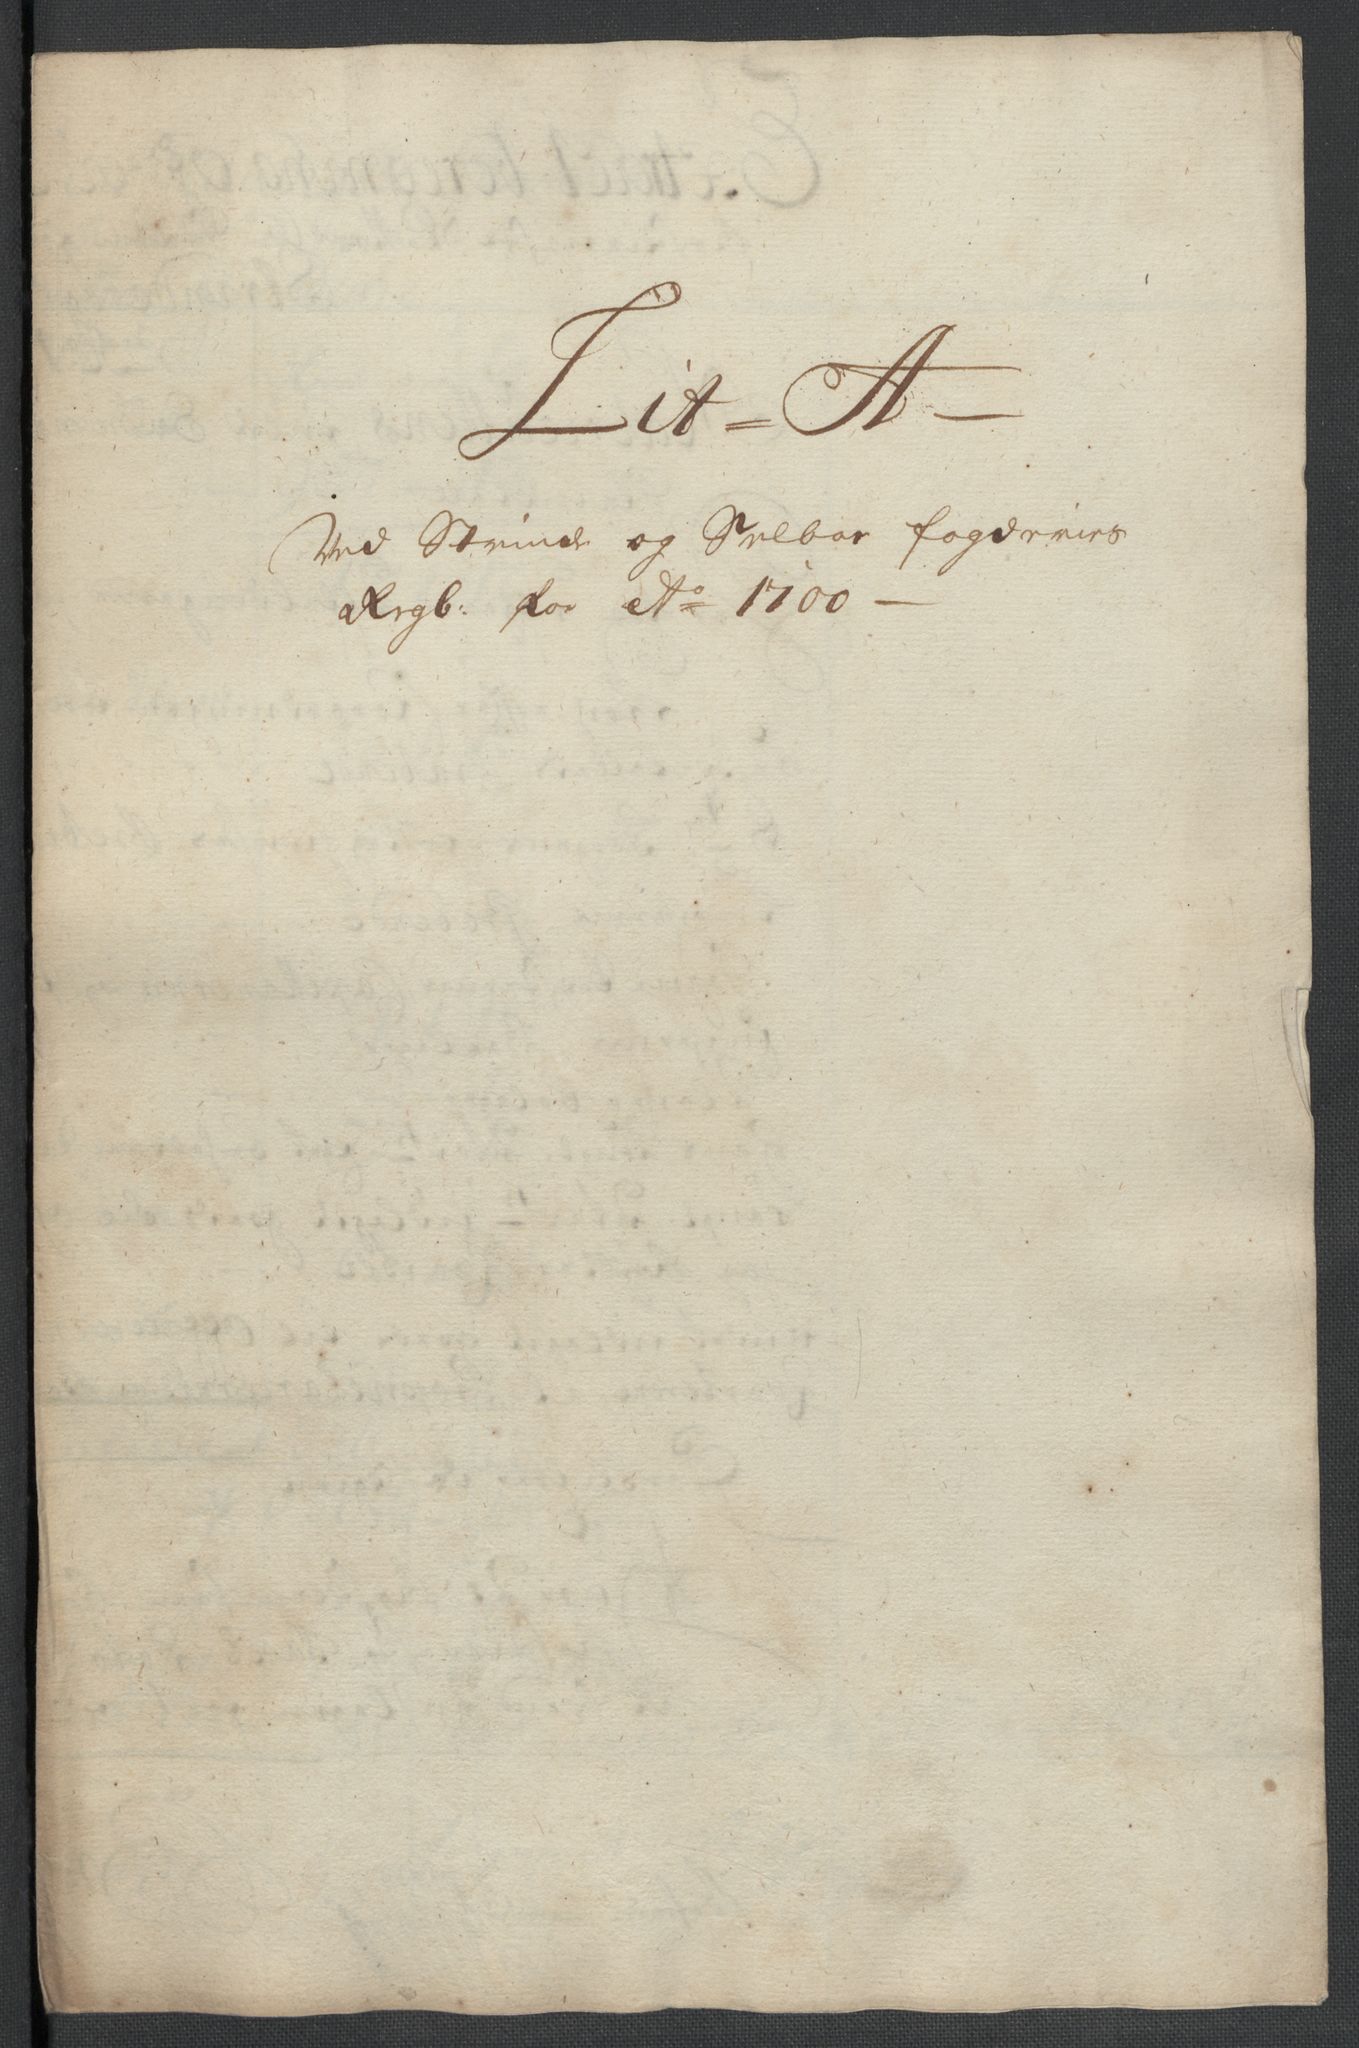 Lit = A —
Ved Strinde og Selboe fogderies
Regb: for Ao 1700 —